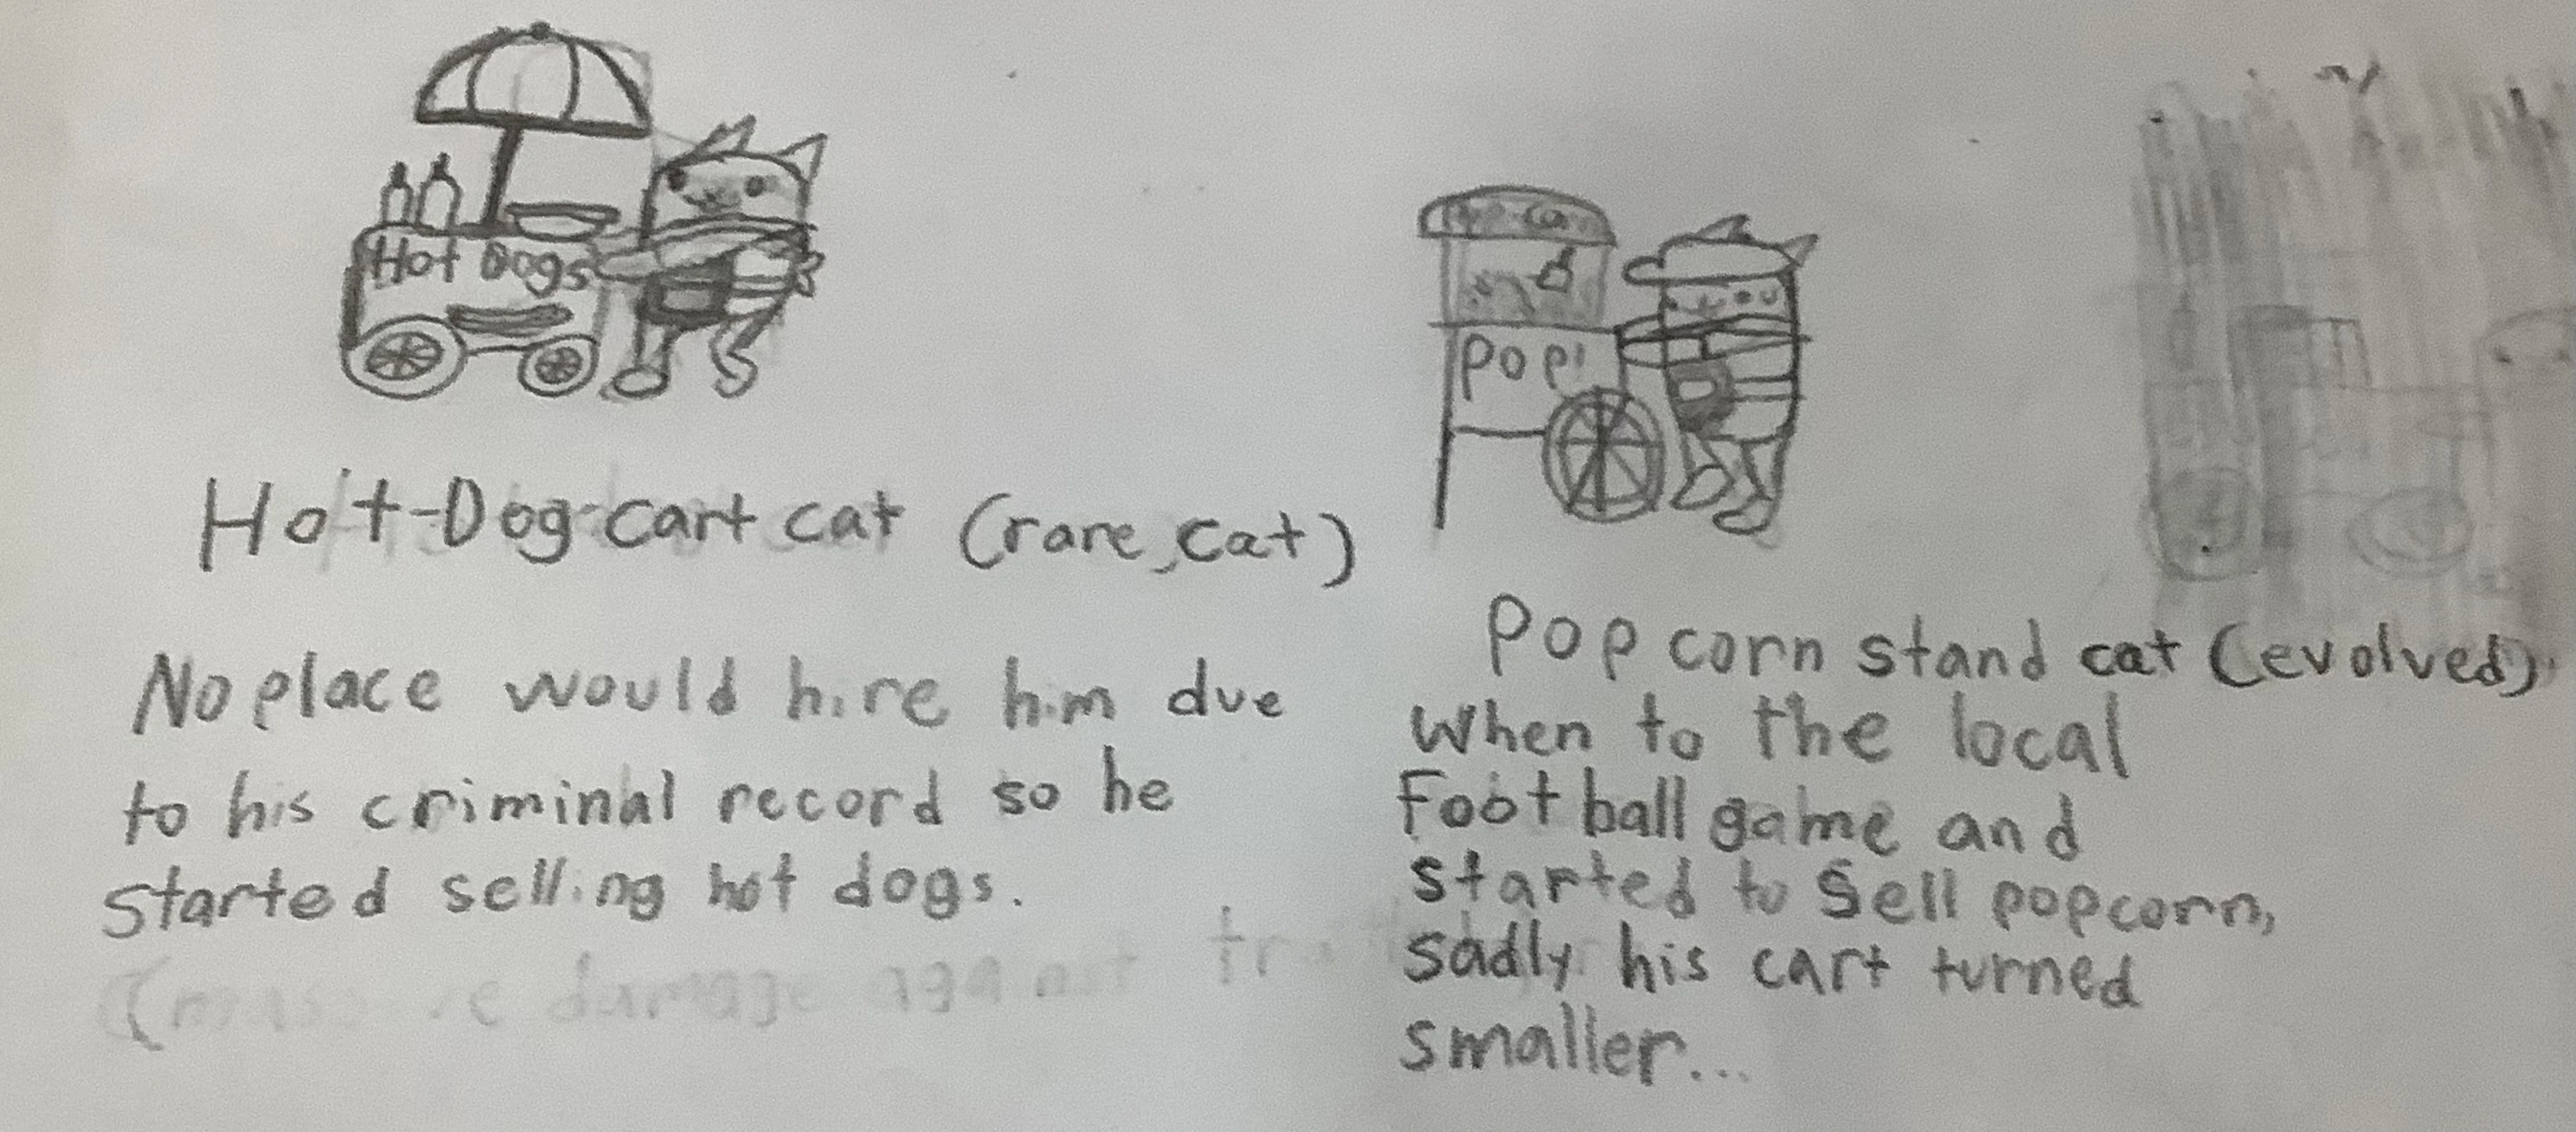 Hot Dogs
Hot-Dog-cart cat (rare cat)
No place would hire him due
to his criminal record so he
started selling hot dogs.
(massive damage against
Pop!
Popcorn stand cat (evolved)
When to the local
Football game and
started to sell popcorn,
sadly his cart turned
smaller...